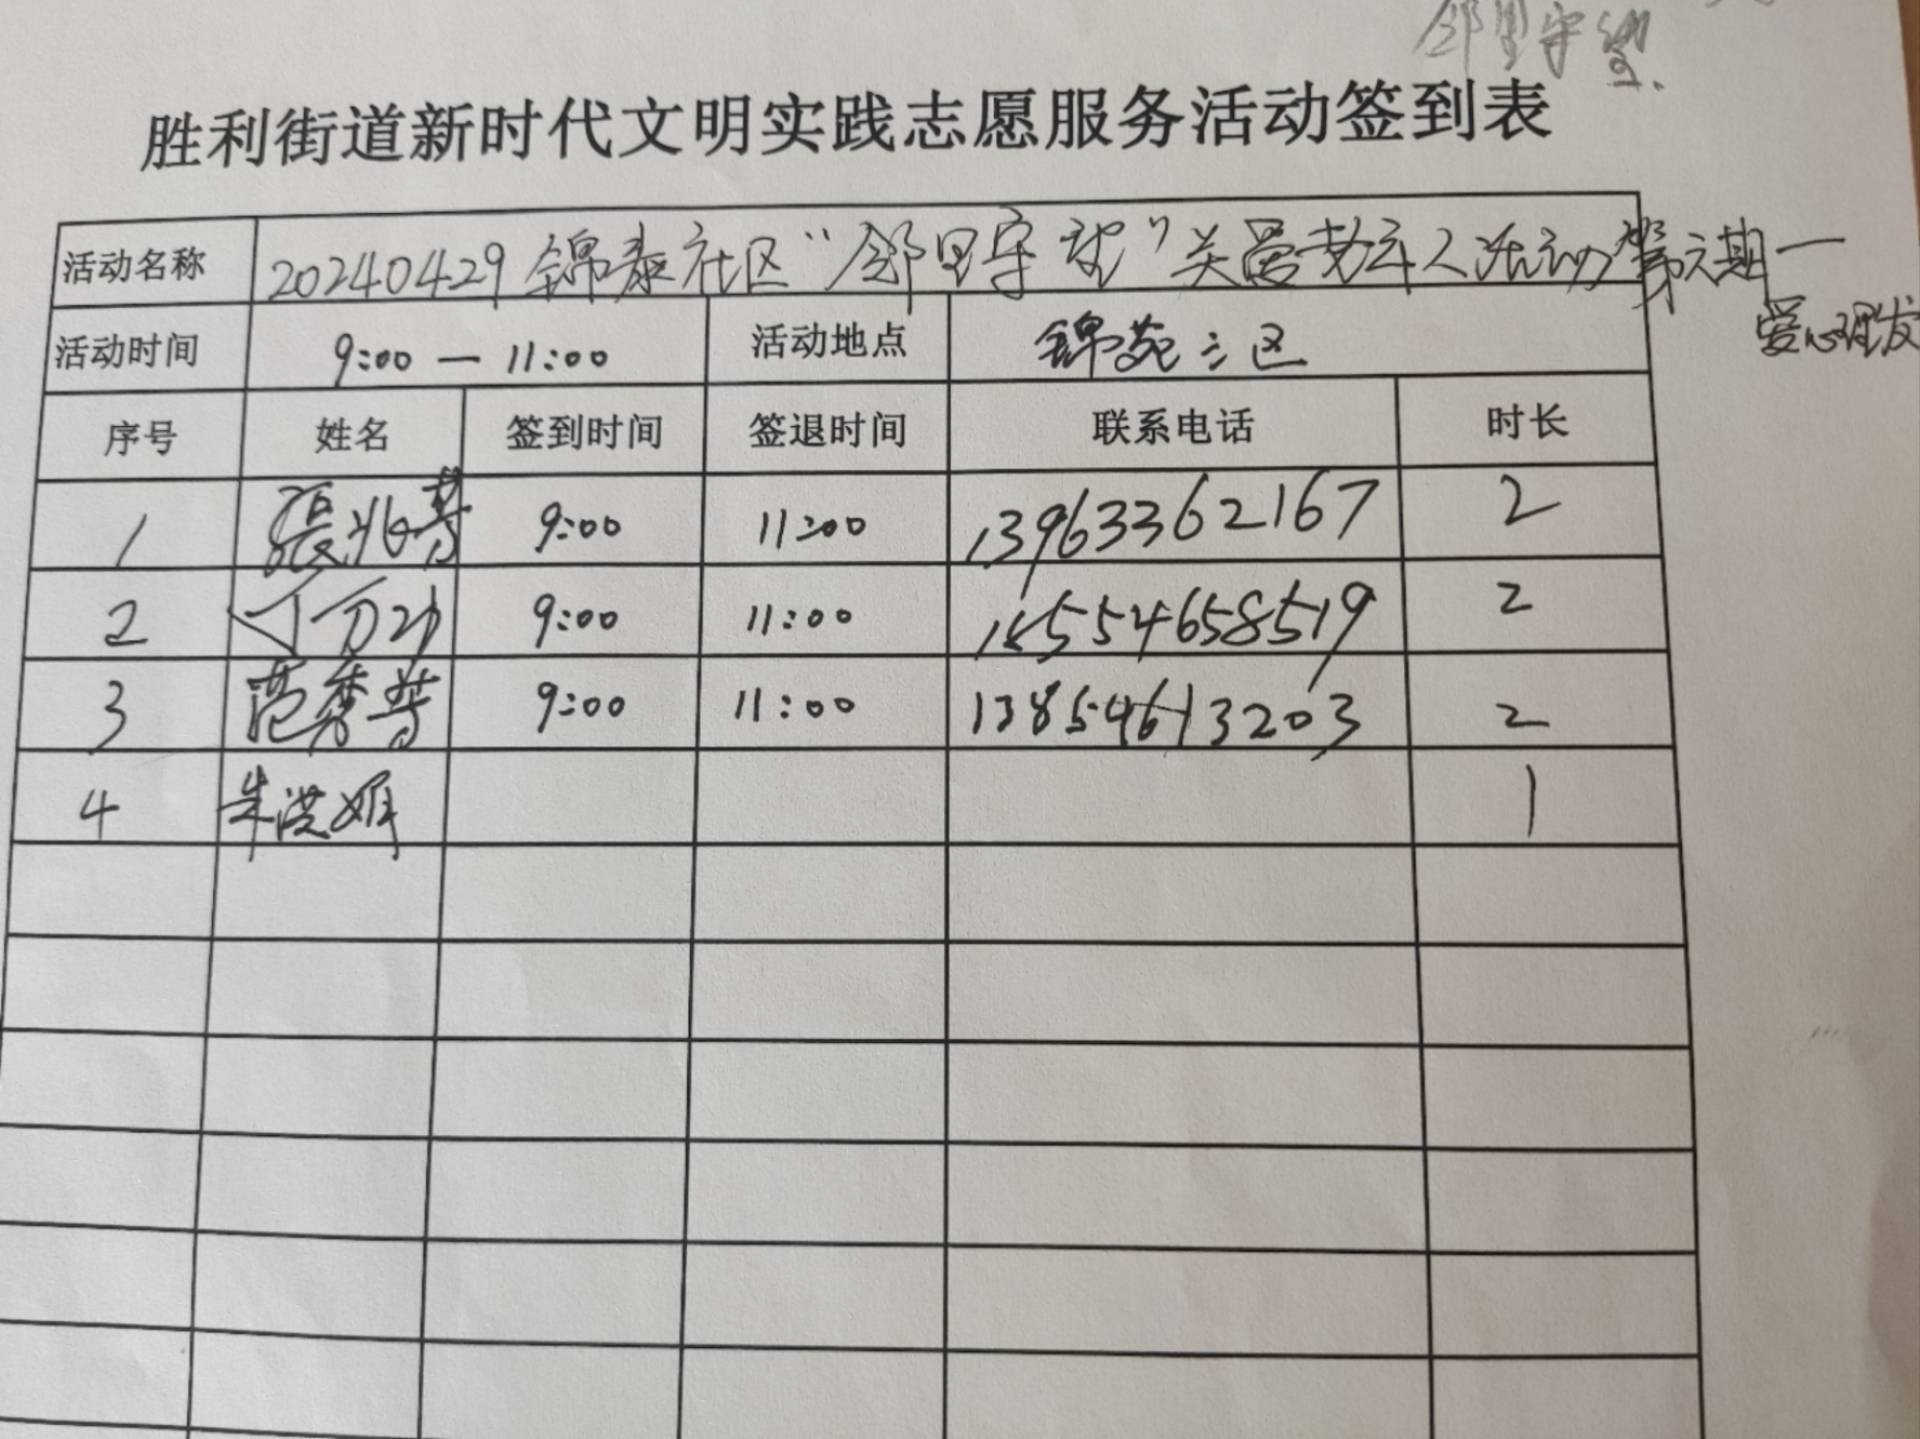 邻里守望.
胜利街道新时代文明实践志愿服务活动签到表
活动名称 20240429锦泰社区“邻里守望”关爱老年人活动第六期一
爱心理发
活动时间 9:00 — 11:00 活动地点 锦苑三区
序号 姓名 签到时间 签退时间 联系电话 时长
1 張兆芳 9:00 11:00 13963362167 2
2 丁万功 9:00 11:00 15554658519 2
3 范秀芳 9:00 11:00 13854613203 2
4 朱洪娟 1